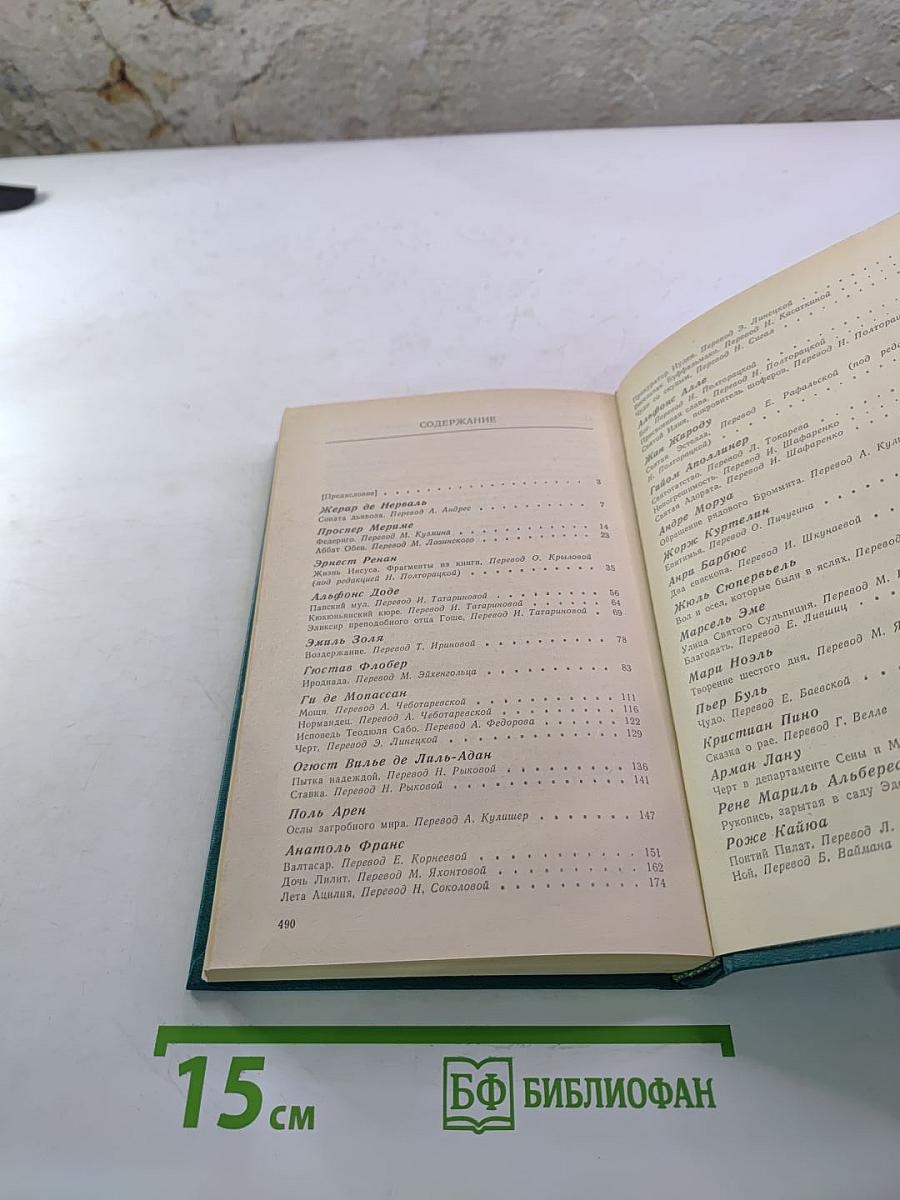 СОДЕРЖАНИЕ
[Предисловие] 3
Жерар де Нерваль
Соната дьявола. Перевод А. Андрес 7
Проспер Мериме
Федериго. Перевод М. Кузмина 14
Аббат Обен. Перевод М. Лозинского 23
Эрнест Ренан
Жизнь Иисуса. Фрагменты из книги. Перевод О. Крыловой
(под редакцией Н. Полторацкой) 35
Альфонс Доде
Папский мул. Перевод И. Татариновой 56
Кюкюньянский кюре. Перевод И. Татариновой 64
Эликсир преподобного отца Гоше, Перевод И. Татариновой 69
Эмиль Золя
Воздержание. Перевод Т. Ириновой 78
Гюстав Флобер
Иродиада. Перевод М. Эйхенгольца 83
Ги де Мопассан
Мощи. Перевод А. Чеботаревской 111
Нормандец. Перевод А. Чеботаревской 116
Исповедь Теодюля Сабо. Перевод А. Федорова 122
Черт, Перевод Э. Линецкой 129
Огюст Вилье де Лиль-Адан
Пытка надеждой, Перевод Н. Рыковой 136
Ставка. Перевод Н. Рыковой 141
Поль Арен
Ослы загробного мира. Перевод А. Кулишер 147
Анатоль Франс
Валтасар. Перевод Е. Корнеевой 151
Дочь Лилит. Перевод М. Яхонтовой 162
Лета Ацилия, Перевод Н, Соколовой 174
490
Прокуратор Иудеи. Перевод Э. Линецкой
Перевод Н. Касаткиной
Перевод Н. Сигал
Альфонс Алле
Перевод Н. Полторацкой
слава. Перевод Н. Полторацкой
Святой покровитель шоферов. Перевод Н.
Жан Жароду
Святая Эстелла, Перевод Е. Рафальской (под
Н. Полторацкой)
Гийом Аполлинер
Святотатство. Перевод Л. Токарева
Непогрешимость. Перевод И. Шафаренко
Святая Адората. Перевод И. Шафаренко
Андре Моруа
Обращение рядового Броммита. Перевод А.
Жорж Куртелин
Епитимья. Перевод О. Пичугина
Анри Барбюс
Два епископа. Перевод И. Шкунаевой
Жюль Сюпервьель
Вол и осел, которые были в яслях,
Марсель Эме
Улица Святого Сульпиция, Перевод М.
Благодать, Перевод Е. Лившиц
Мари Ноэль
Творение шестого дня, Перевод М.
Пьер Буль
Чудо. Перевод Е. Баевской
Кристиан Пино
Сказка о рае. Перевод Г. Велле
Арман Лану
Черт в департаменте Сены и
Рене Мариль Альберес
Рукопись, зарытая в саду
Роже Кайюа
Понтий Пилат, Перевод Л.
Ной, Перевод Б. Ваймана
15 см
БФ БИБЛИОФАН